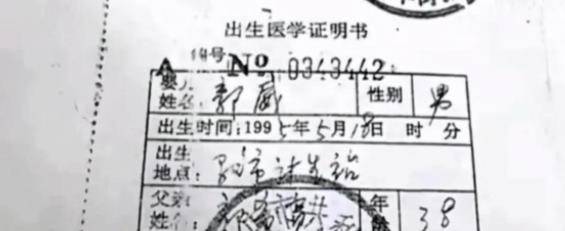 出生医学证明书
A 14号 No 0343442
婴儿姓名: 郭威 性别 男
出生时间:1995年5月18日 时 分
出生地点: 市计生站
父亲姓名: 年龄 38